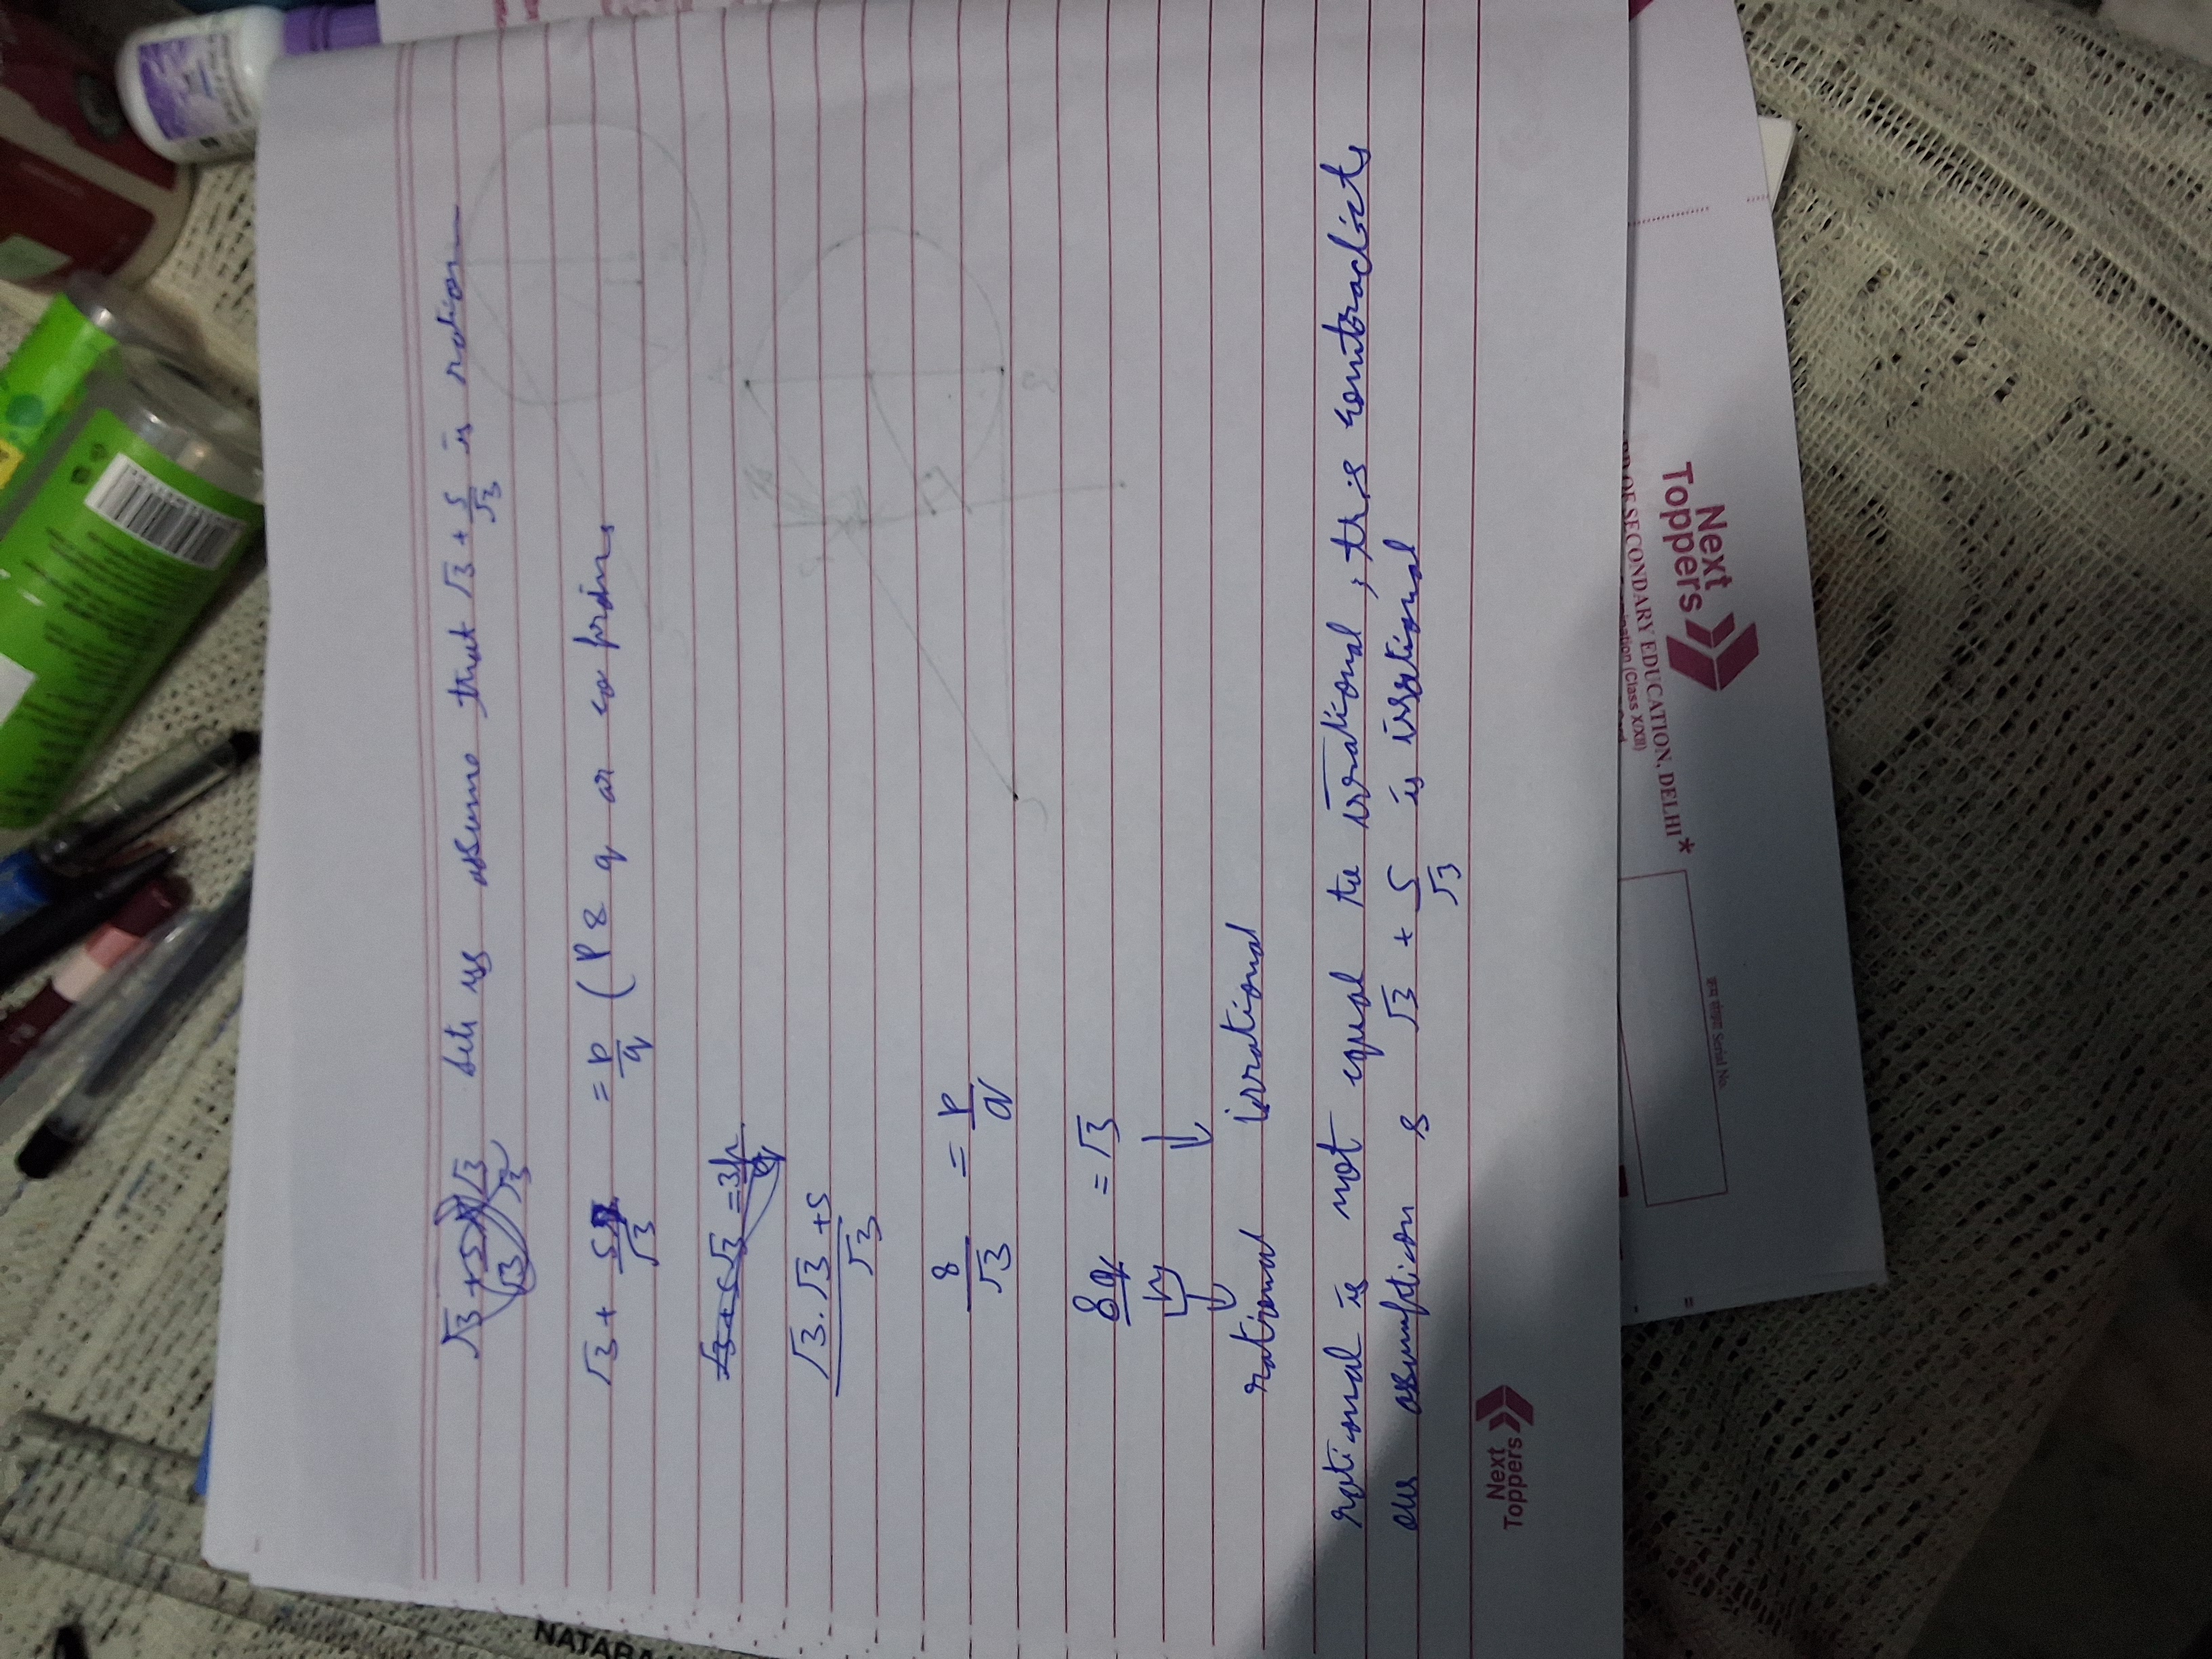 √3 + 5/√3 × √3/√3 Let us assume that √3 + 5/√3 is ration
√3 + 5/√3 = p/q (P & q ar co prim
√3 + 5√3 = 3p/q
√3 . √3 + 5 / √3
8/√3 = p/q
8q/p = √3
rational irrational
rational is not equal to irrational, this contradicts
our assumption & √3 + 5/√3 is irrational
Next
Toppers
Next
Toppers
OF SECONDARY EDUCATION, DELHI *
(Class X/XII)
Serial No.
NATARA